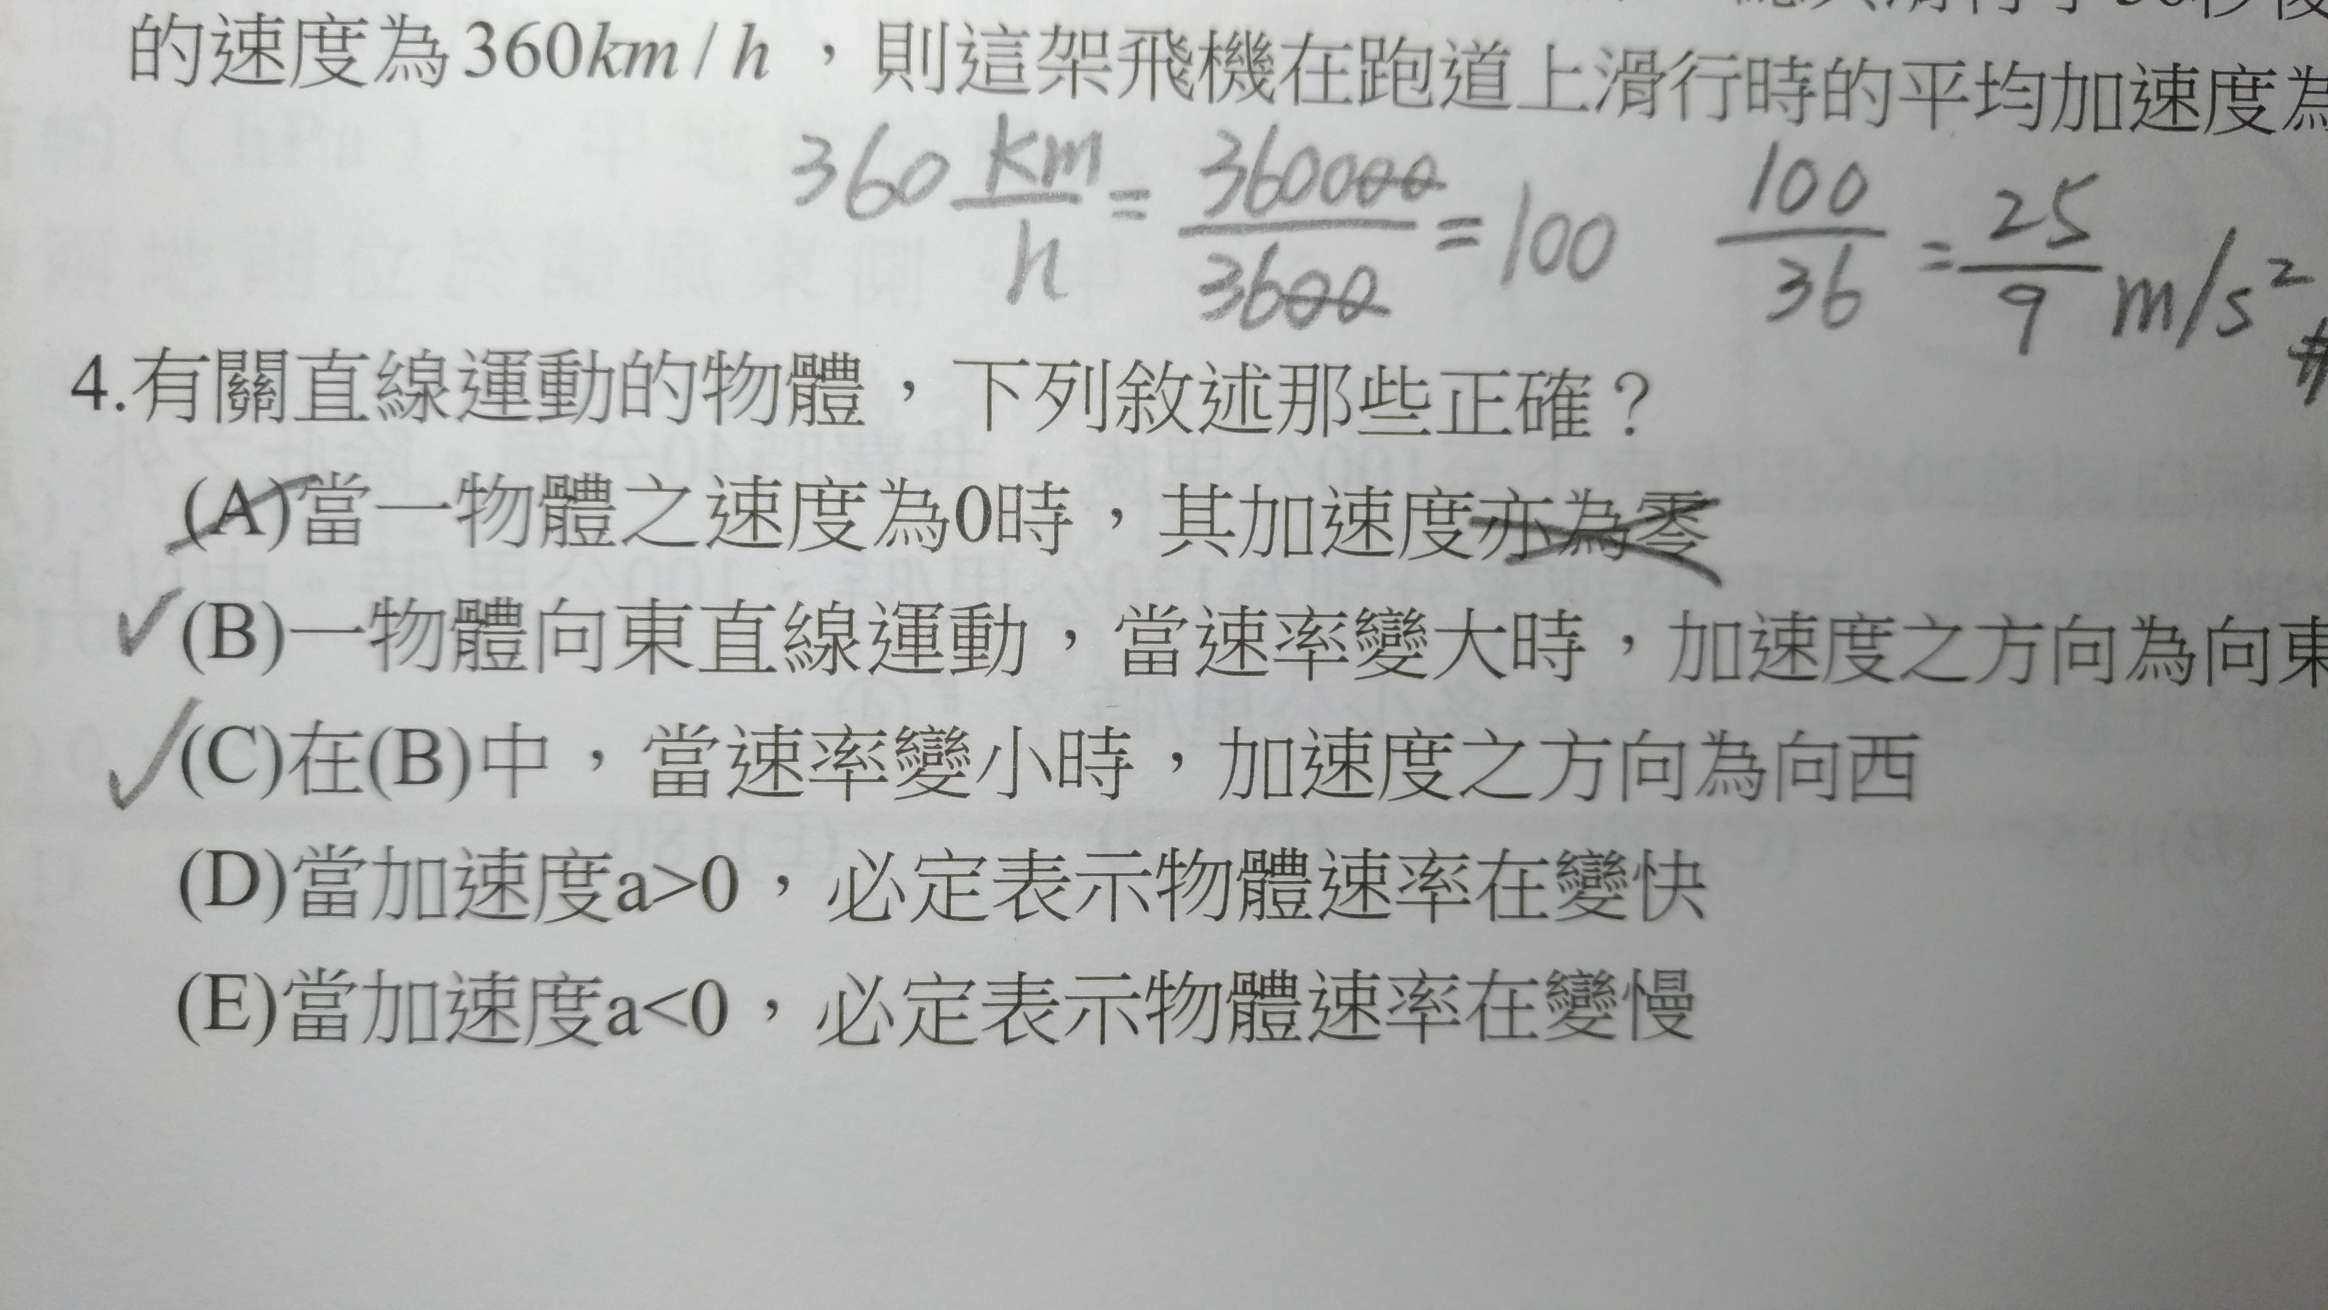 的速度為360km/h，則這架飛機在跑道上滑行時的平均加速度為
360 km/h = 360000/3600 = 100 100/36 = 25/9 m/s² #
4.有關直線運動的物體，下列敘述那些正確？
(A)當一物體之速度為0時，其加速度亦為零
✓(B)一物體向東直線運動，當速率變大時，加速度之方向為向東
✓(C)在(B)中，當速率變小時，加速度之方向為向西
(D)當加速度a>0，必定表示物體速率在變快
(E)當加速度a<0，必定表示物體速率在變慢